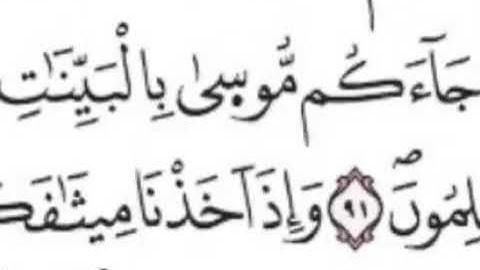 جَآءَكُم مُّوسَىٰ بِالْبَيِّنَٰتِ
لِمُونَۖ ٩١ وَإِذَ اَخَذْنَا مِيثَٰقَك